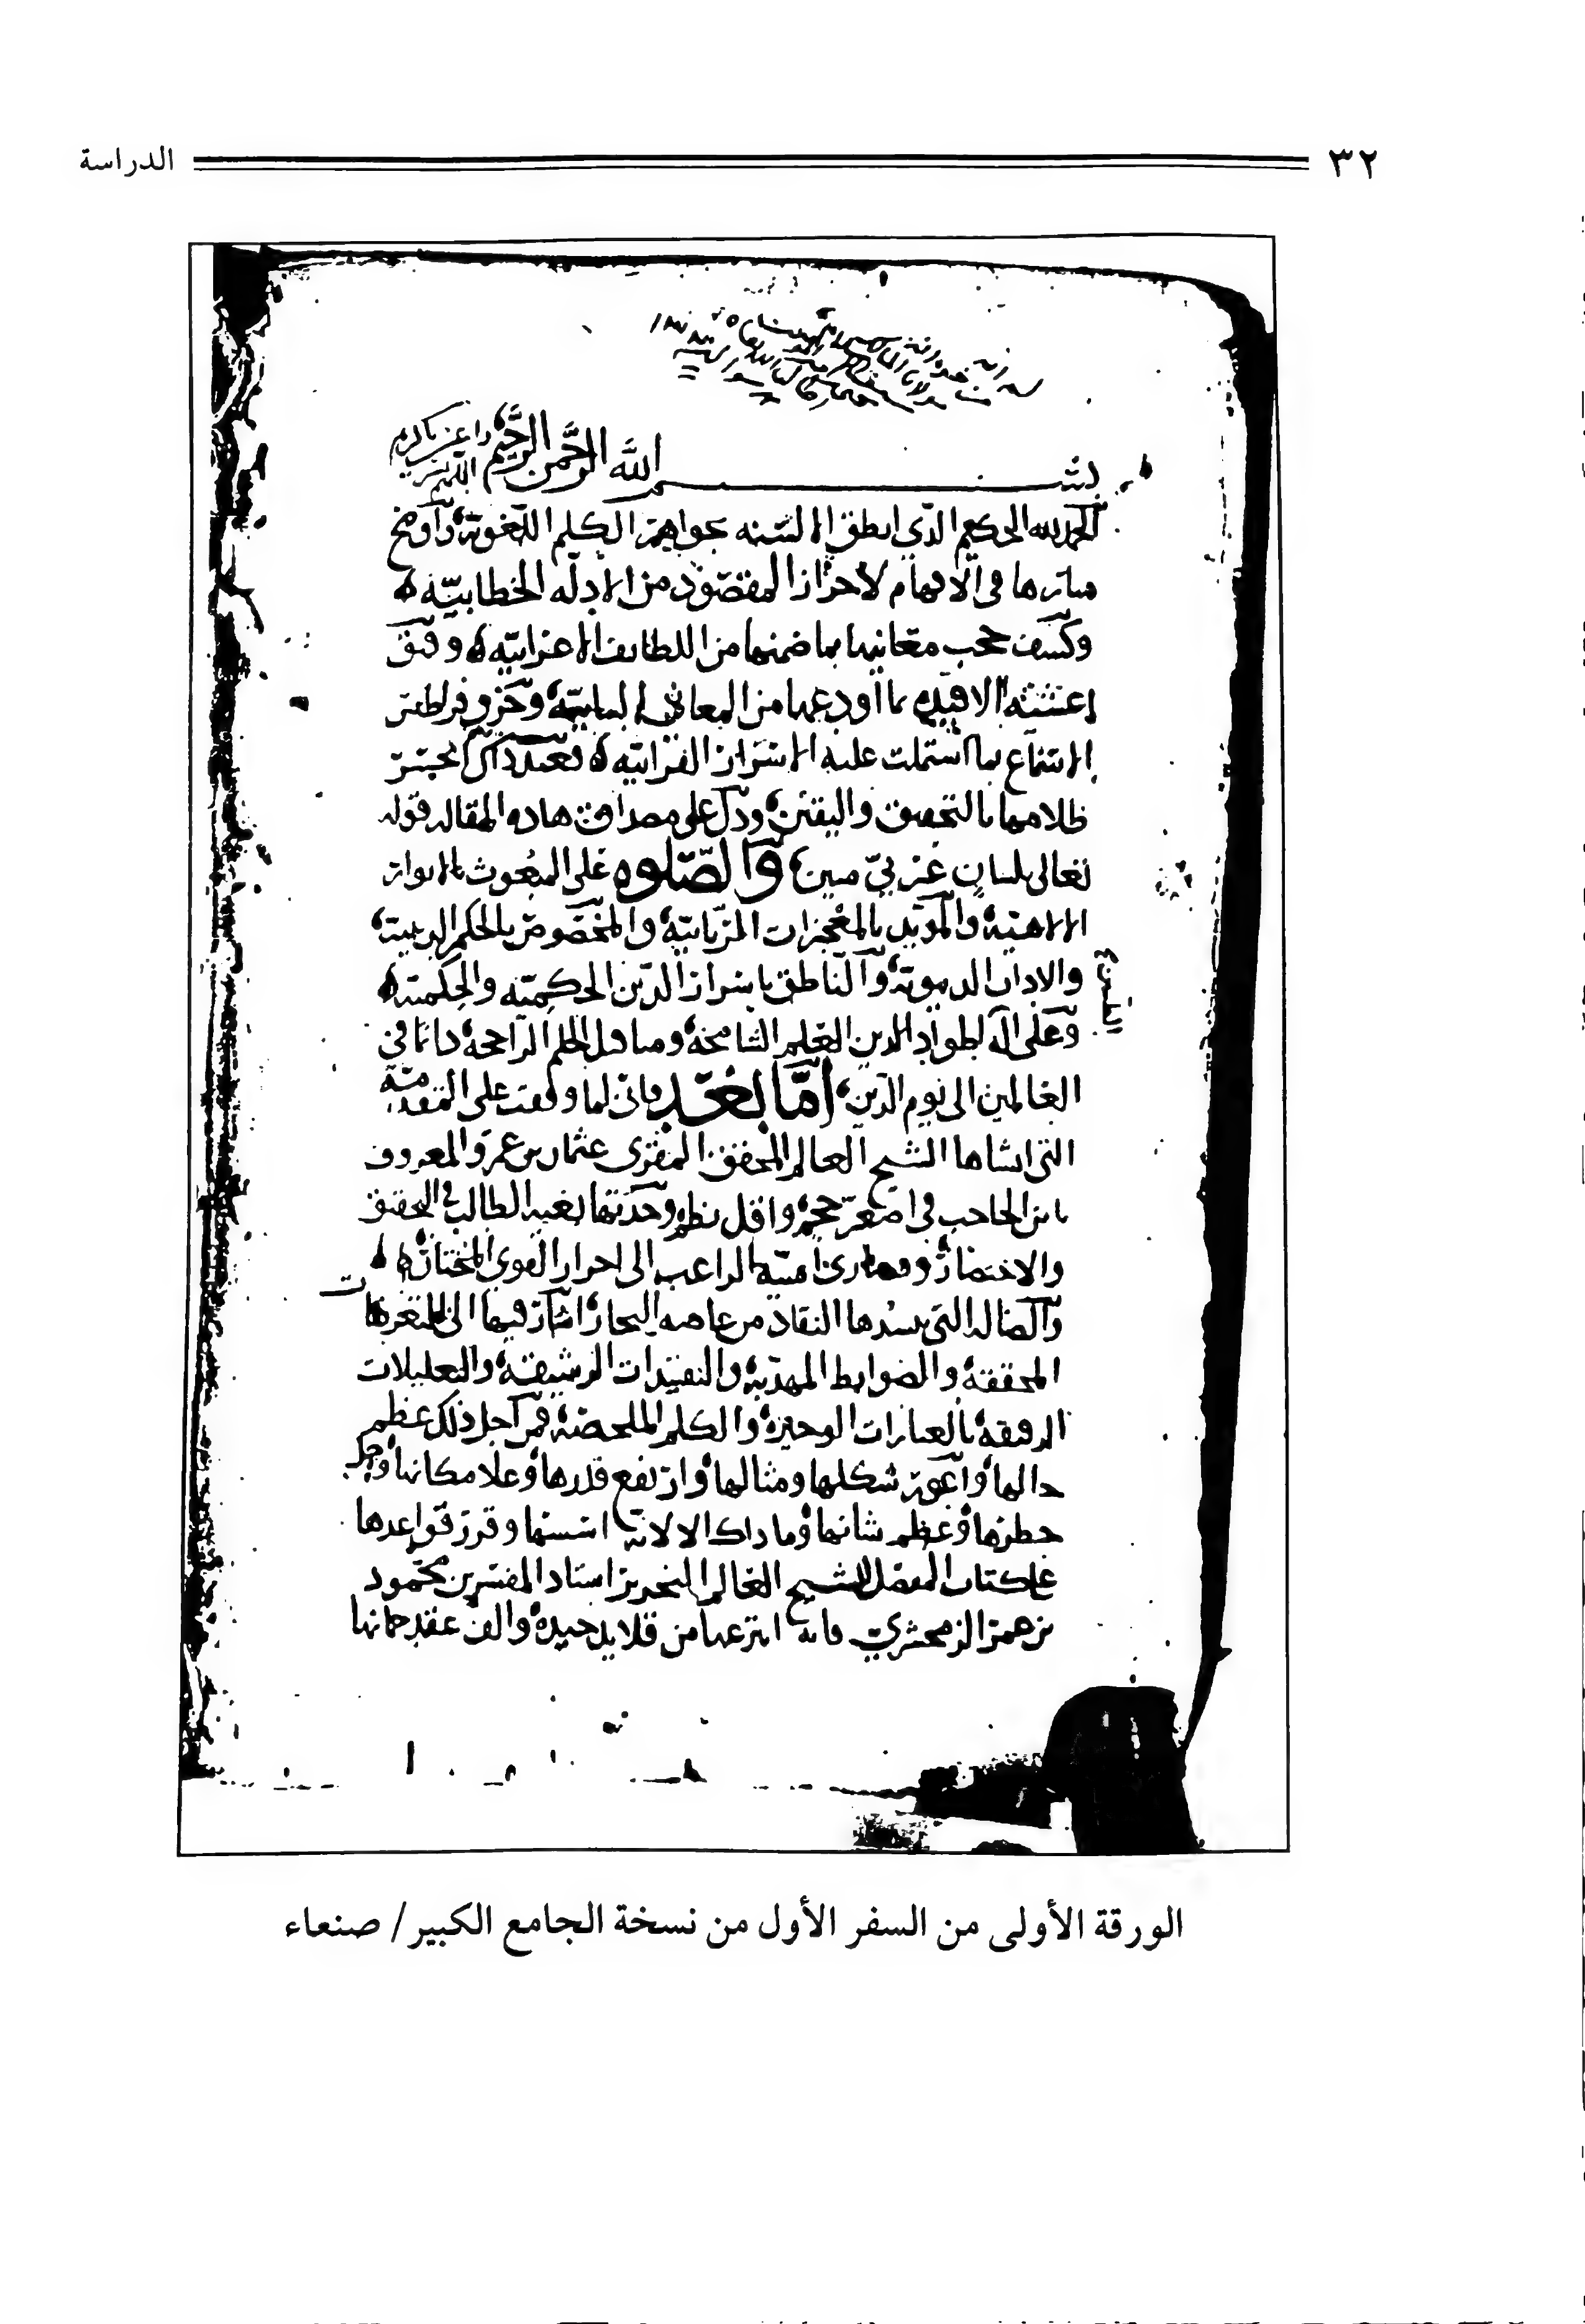 ٣٢ الدراسة
بسم الله الرحمن الرحيم
الحمد لله الحكيم الذي انطق الالسنه بجواهر الكلم اللغوية واوضح
منارها في الافهام لاحراز المقصود من الادله الخطابيه
وكشف حجب معانيها بما ضمنها من اللطايف الاعرابيه وفتق
الافيده بما اودعها من المعاني البيانيه
الانتفاع بما اشتملت عليه الاسرار القرانيه
ظلامها بالتحقيق واليقين ودل على مصداق هاده المقاله قوله
تعالى بلسان عربي مبين والصلوه على المبعوث بالانوار
الالاهية والمويد بالمعجزات الربانيه والمخصوص بالحكم
والاداب والناطق باسرار الدين الحكميه والحكميه
وعلى اله اطواد الدين العلم الشامخه الحلم الراجحه دائما في
العالمين الى يوم الدين اما بعد فاني لما وقفت على المقدمة
التي انشاها الشيخ العالم المحقق المقري عثمان بن عمرو المعروف
بابن الحاجب في اصغر حجم واقل نظم وجدتها بغيه الطالب في التحقيق
والاختصار امنيه الراغب الى احراز القوي المختار
والضاله التي ينشدها النقاد من غاصه البحار اشار فيها الى
المحققه والضوابط المهذبه والتقييدات الرشيقه والتعليلات
الدقيقه بالعبارات الوجيزه والكلم الملخصه فمن اجل ذلك عظم
حالها واعوز شكلها ومثالها وارتفع قدرها وعلا مكانها وجل
خطرها وعظم شانها وما داك الا لانه اسسها وقرر قواعدها
على كتاب المفصل للشيخ العالم النحرير استاد المفسرين محمود
بن عمر الزمخشري فانه انتزعها من قلايد جيده والف عقد جمانها
الورقة الأولى من السفر الأول من نسخة الجامع الكبير/ صنعاء